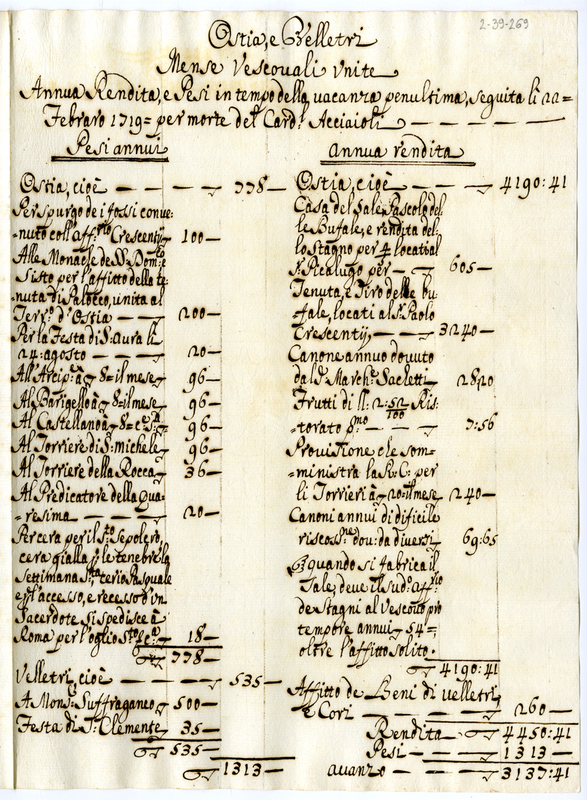 2-39-269
Ostia, e Velletri
Mense Vescovali Vnite
Annua Rendita, e Pesi in tempo della vacanza penultima, seguita li 22=
Febraro 1719= per morte del Card. Acciaioli
Pesi annui
Ostia, cioè — 778—
Per spurgo de i fossi conve:
=nuto coll'aff.rio Crescentij 100—
Alle Monache de SS. Dom:co e
Sisto per l'affitto della te=
=nuta di Palocco, unita al
Terr.o d'Ostia — 200—
Per la Festa di S. Aura li
24: agosto — 20—
All'Arcip: à 8= il mese 96—
Al Barigello à 8= il mese 96—
Al Castellano à 8= 96—
Al Torriere di S: Michele 96—
Al Torriere della Rocca 36—
Al Predicatore della Qua=
=resima — 20—
Per cera per il S: Sepolcro,
cera gialla p le tenebre la
settimana S.ta cerio Pasquale
e p l'accesso, e recesso d'un
Sacerdote si spedisce à
Roma per l'oglio S.to 18—
778—
Velletri, cioè — 535—
A Mons: Suffraganeo 500—
Festa di S: Clemente 35—
535—
1313—
Annua rendita
Ostia, cioè — 4190:41
Casa del Sale, Pascolo del
le Bufale, e rendita del
lo Stagno per 4 locati al
S.r per — 605—
Tenuta, e Tiro delle bu
fale, locati al S.r Paolo
Crescentij — 3240—
Canone annuo dovuto
dal March.e Sachetti 28:20
Frutti di ll: 2:52 Ris=
100
torato p.mo — 7:56
Provisione che som=
=ministra la R.C: per
li Torrieri à 20= il mese 240—
Canoni annui di dificile
riscoss.ne dov: da diversi 69:65
E quando si fabrica il
Sale, deve il sud.o aff.rio
de Stagni al Vescovo pro
tempore annui 54=
oltre l'affitto solito.
4190:41
Affitto de Beni di Velletri
e Cori — 260—
Rendita 4450:41
Pesi — 1313—
avanzo — 3137:41